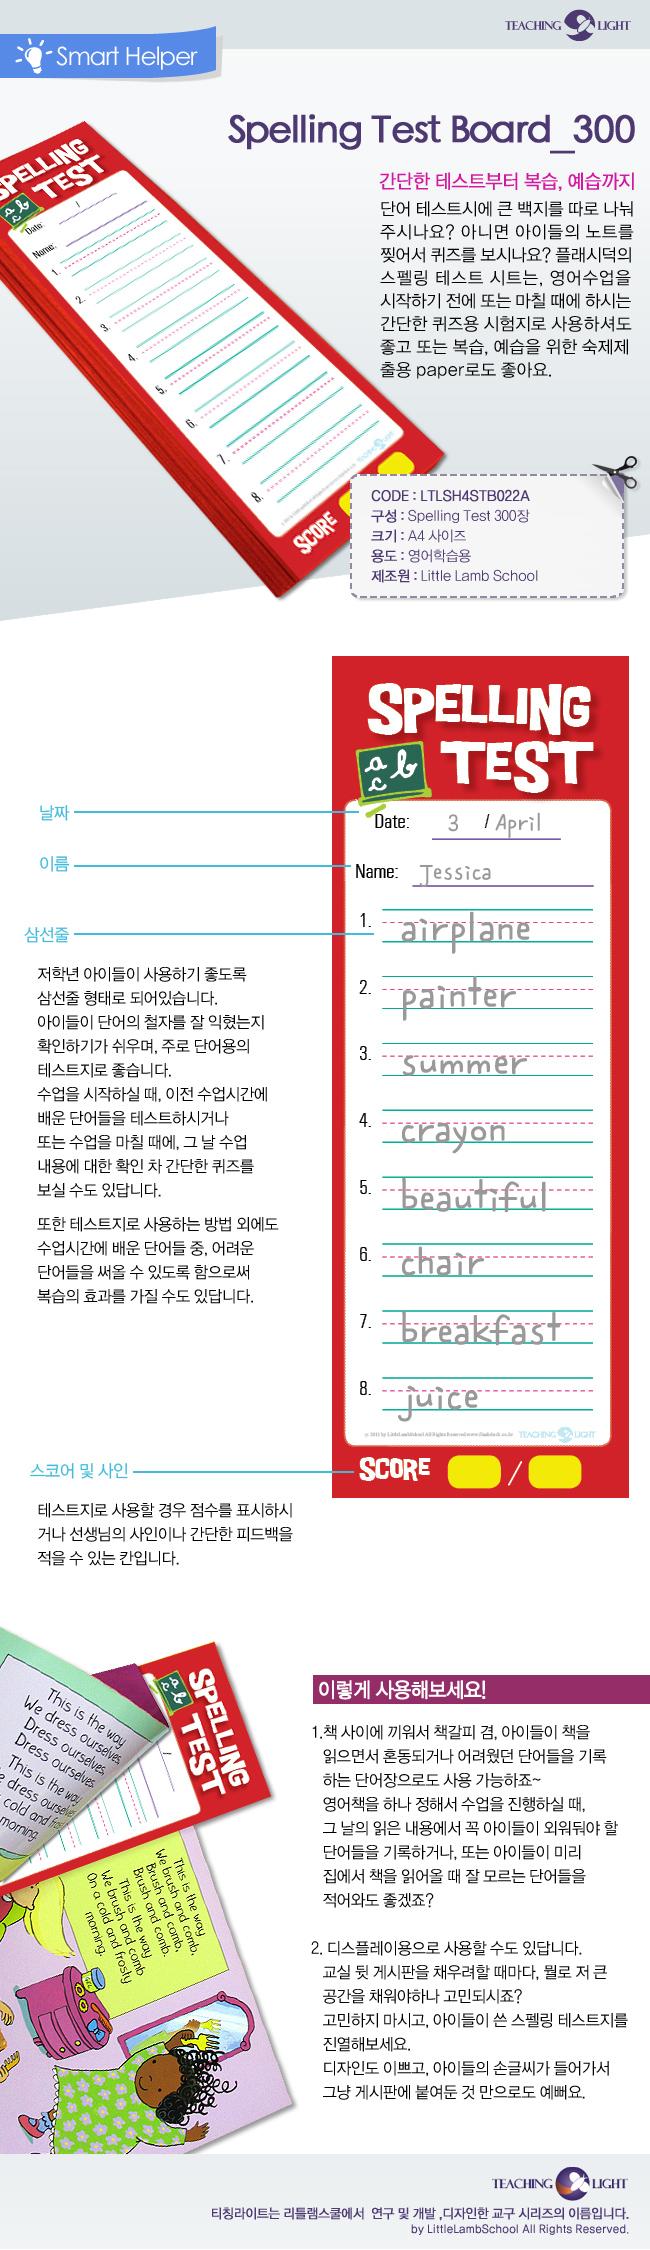 TEACHING LIGHT
Smart Helper
Spelling Test Board_300
간단한 테스트부터 복습, 예습까지
단어 테스트시에 큰 백지를 따로 나눠
주시나요? 아니면 아이들의 노트를
찢어서 퀴즈를 보시나요? 플래시덕의
스펠링 테스트 시트는, 영어수업을
시작하기 전에 또는 마칠 때에 하시는
간단한 퀴즈용 시험지로 사용하셔도
좋고 또는 복습, 예습을 위한 숙제제
출용 paper로도 좋아요.
SPELLING
TEST
Date: /
Name:
1.
2.
3.
4.
5.
6.
7.
8.
SCORE
CODE : LTLSH4STB022A
구성 : Spelling Test 300장
크기 : A4 사이즈
용도 : 영어학습용
제조원 : Little Lamb School
SPELLING
TEST
a b
c
날짜
Date: 3 / April
이름
Name: Jessica
삼선줄
1. airplane
2. painter
3. summer
4. crayon
5. beautiful
6. chair
7. breakfast
8. juice
TEACHING LIGHT
SCORE /
저학년 아이들이 사용하기 좋도록
삼선줄 형태로 되어있습니다.
아이들이 단어의 철자를 잘 익혔는지
확인하기가 쉬우며, 주로 단어용의
테스트지로 좋습니다.
수업을 시작하실 때, 이전 수업시간에
배운 단어들을 테스트하시거나
또는 수업을 마칠 때에, 그 날 수업
내용에 대한 확인 차 간단한 퀴즈를
보실 수도 있답니다.
또한 테스트지로 사용하는 방법 외에도
수업시간에 배운 단어들 중, 어려운
단어들을 써올 수 있도록 함으로써
복습의 효과를 가질 수도 있답니다.
스코어 및 사인
테스트지로 사용할 경우 점수를 표시하시
거나 선생님의 사인이나 간단한 피드백을
적을 수 있는 칸입니다.
This is the way
We dress ourselves,
Dress ourselves,
Dress ourselves.
This is the way
We dress ourselves
cold and
morning.
SPELLING
TEST
This is the way
We brush and comb,
Brush and comb,
Brush and comb.
This is the way
We brush and comb
On a cold and frosty
morning.
이렇게 사용해보세요!
1.책 사이에 끼워서 책갈피 겸, 아이들이 책을
읽으면서 혼동되거나 어려웠던 단어들을 기록
하는 단어장으로도 사용 가능하죠~
영어책을 하나 정해서 수업을 진행하실 때,
그 날의 읽은 내용에서 꼭 아이들이 외워둬야 할
단어들을 기록하거나, 또는 아이들이 미리
집에서 책을 읽어올 때 잘 모르는 단어들을
적어와도 좋겠죠?
2. 디스플레이용으로 사용할 수도 있답니다.
교실 뒷 게시판을 채우려할 때마다, 뭘로 저 큰
공간을 채워야하나 고민되시죠?
고민하지 마시고, 아이들이 쓴 스펠링 테스트지를
진열해보세요.
디자인도 이쁘고, 아이들의 손글씨가 들어가서
그냥 게시판에 붙여둔 것 만으로도 예뻐요.
TEACHING LIGHT
티칭라이트는 리틀램스쿨에서 연구 및 개발 ,디자인한 교구 시리즈의 이름입니다.
by LittleLambSchool All Rights Reserved.